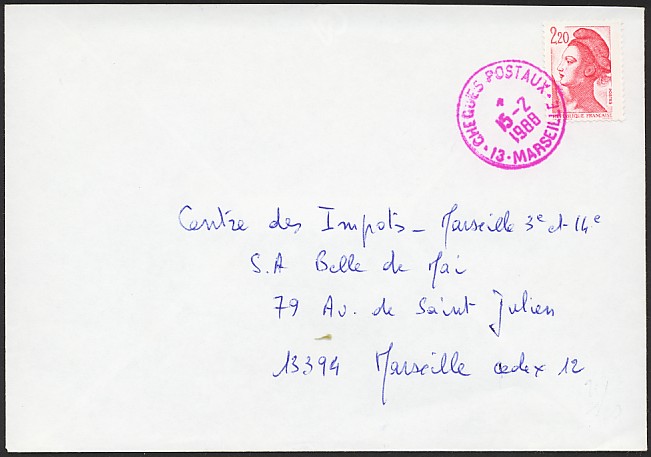 2,20
REPUBLIQUE FRANÇAISE
CHEQUES POSTAUX
A
15-2
1988
13-MARSEILLE
Centre des Impots - Marseille 3e et 14e
S.A Belle de Mai
79 Av. de Saint Julien
13394 Marseille cedex 12